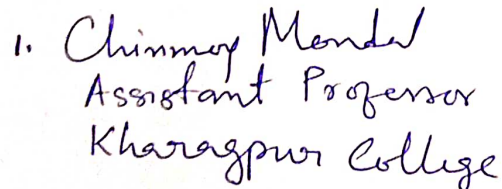 1. Chinmoy Mondal
Assistant Professor
Kharagpur College